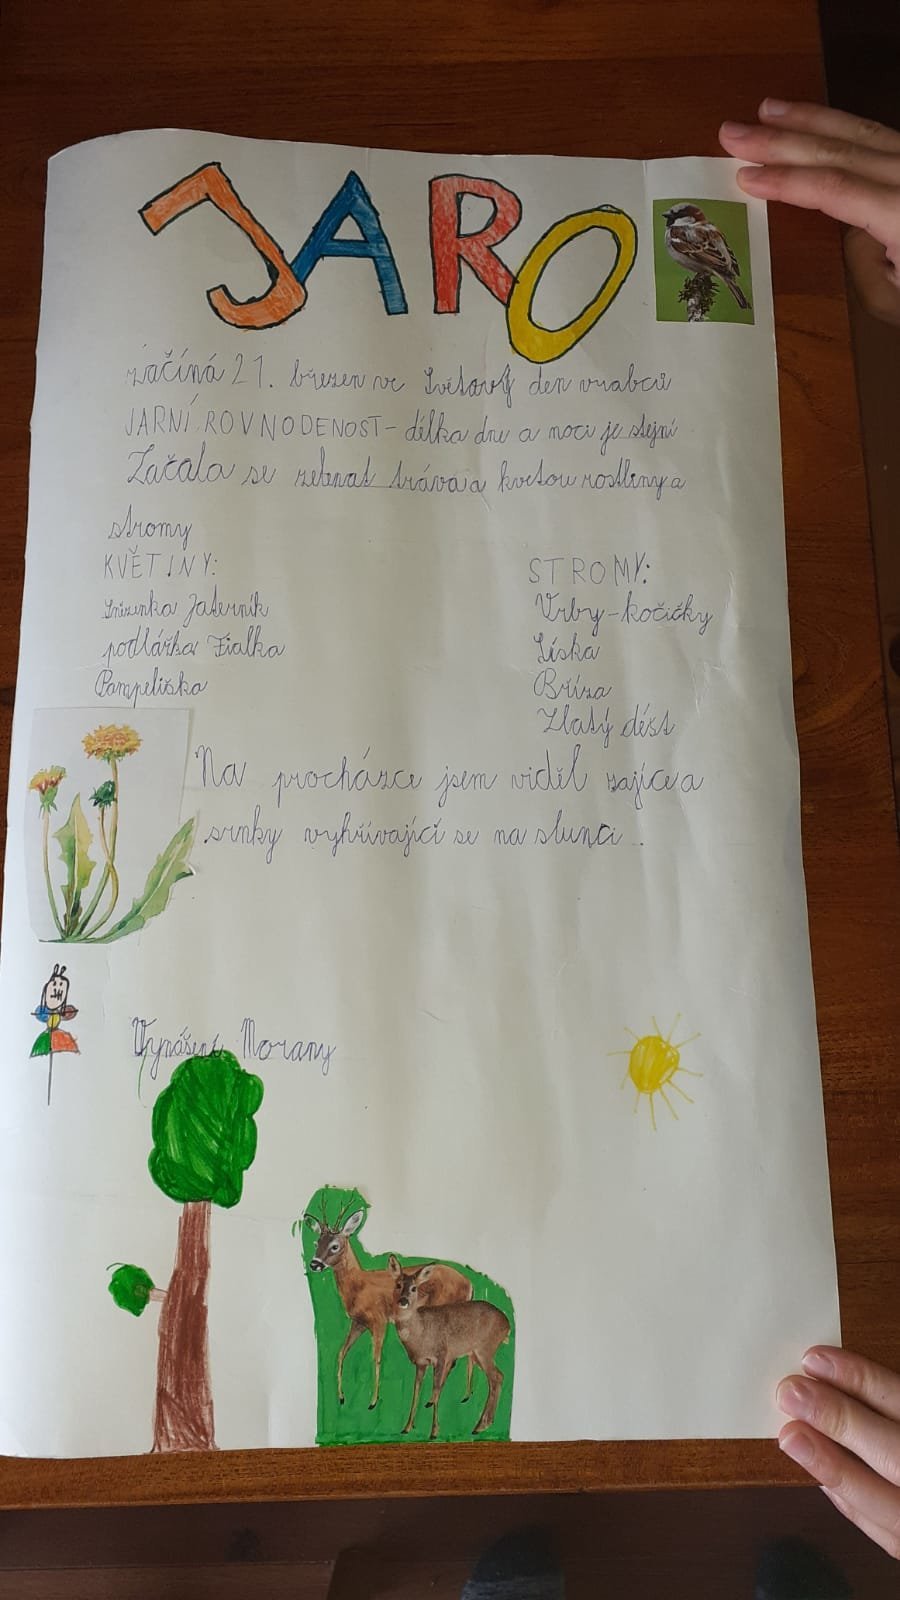 JARO
začíná 21. březen ve Světový den vrabců
JARNÍ ROVNODENOST - délka dne a noci je stejní
Začala se zelenat tráva a kvetou rostliny a
stromy
KVĚTINY:
Sněženka Jaterník
podlážka Fialka
Pampeliška
STROMY:
Vrby - kočičky
Líska
Bříza
Zlatý déšt
Na procházce jsem viděl zajíce a
srnky vyhřívající se na slunci..
Vynášení Morany